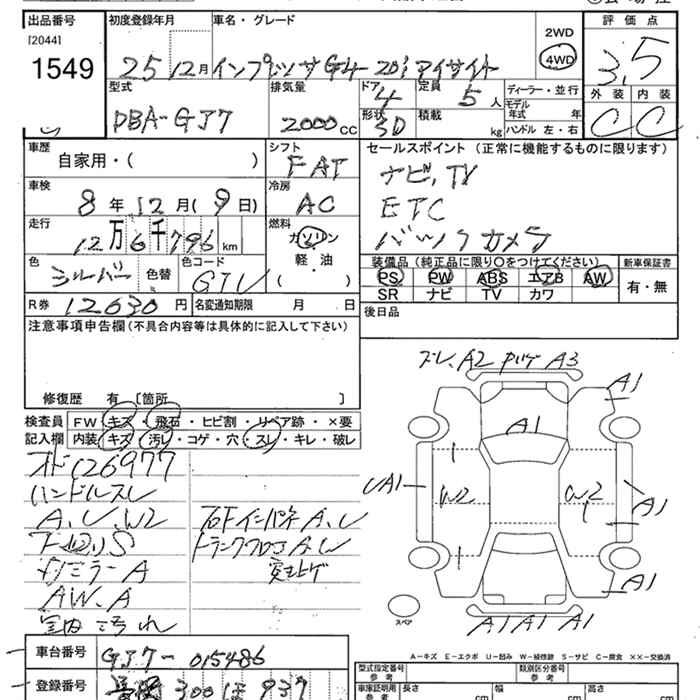 出品番号
[2044]
1549
初度登録年月
車名・グレード
25 12月 インプレッサG4-20iアイサイト
2WD
4WD
評価点
3.5
型式
DBA-GJ7
排気量
2000cc
ドア
4
形状
3D
定員
5人
積載
kg
ディーラー・並行
モデル年式 年
ハンドル 左・右
外装 内装
C C
車歴
自家用・( )
シフト
FAT
車検
8年12月(9日)
冷房
AC
走行
12万6千796km
燃料
ガソリン
軽・油
( )
色
シルバー
色替
色コード
G1U
R券 12630円
名変通知期限 月 日
セールスポイント(正常に機能するものに限ります)
ナビ,TV
ETC
バックカメラ
装備品(純正品に限り○をつけてください)
PS PW ABS エアB AW
SR ナビ TV カワ
新車保証書
有・無
後日品
注意事項申告欄(不具合内容等は具体的に記入して下さい)
修復歴 有 [箇所 ]
検査員記入欄
FW キズ・飛石・ヒビ割・リペア跡・×要
内装 キズ・汚レ・コゲ・穴・スレ・キレ・破レ
オド126977
ハンドルスレ
A,U,W2
ミラーA
AW.A
A,U
トランクフロアA,U
突上ゲ
A2 A3
A1
A1
UA1
W2
W2
A1
A1
A1 A1 A1
スペア
A-キズ E-エクボ U-凹み W-補修跡 S-サビ C-腐食 XX-交換済
車台番号 GJ7-015486
登録番号 300 ほ 937
型式指定番号 参考
類別区分番号 参考
車庫証明用 参考
長さ cm
幅 cm
高さ cm